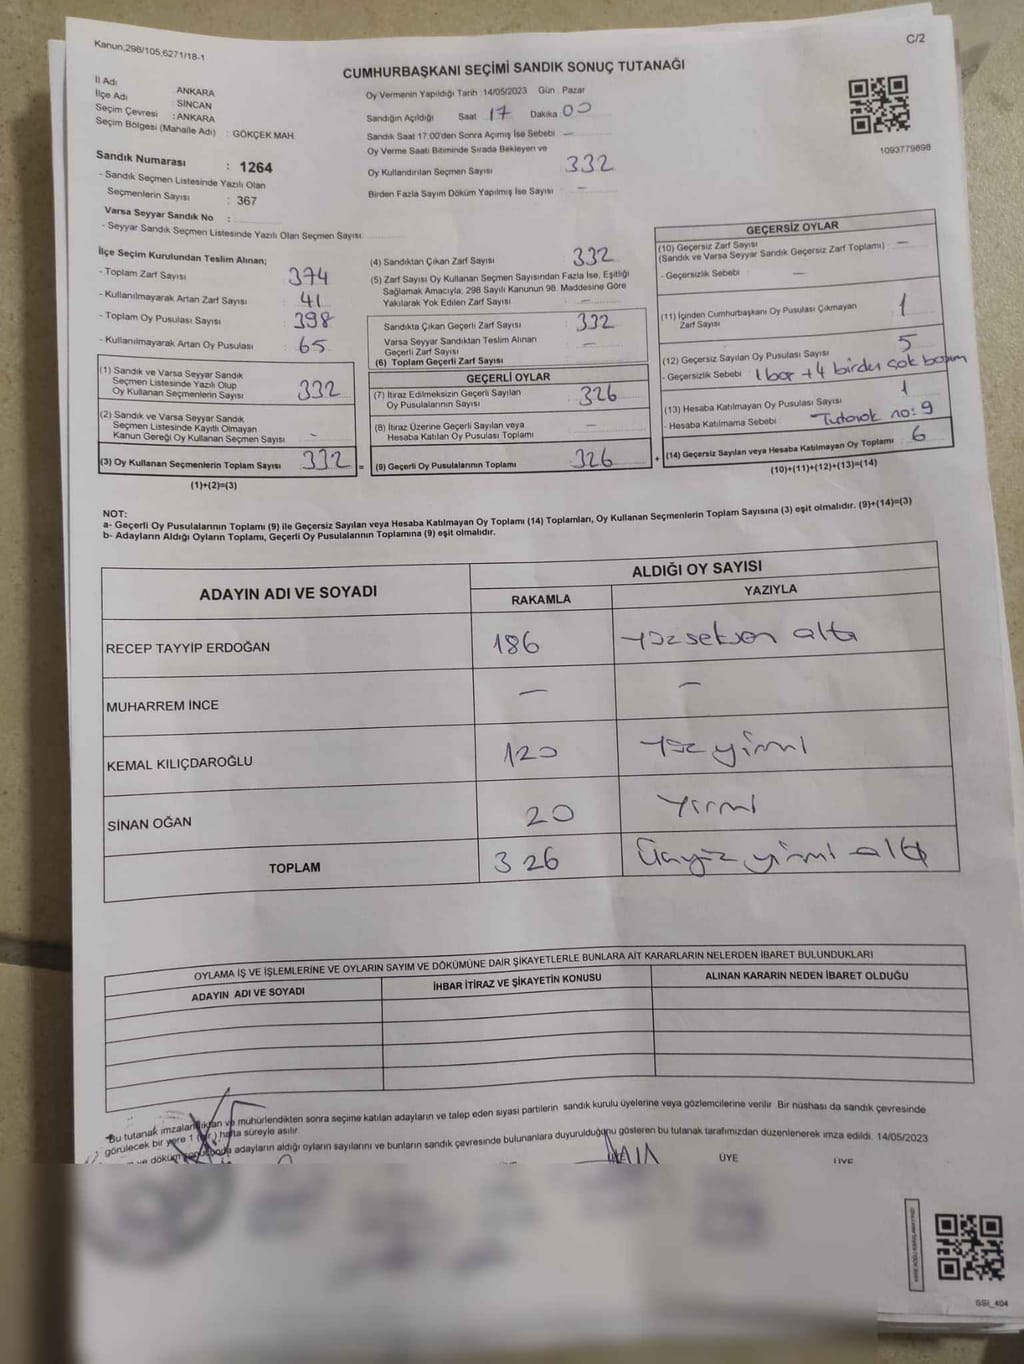 Kanun;298/105;6271/18-1
C/2
CUMHURBAŞKANI SEÇİMİ SANDIK SONUÇ TUTANAĞI
İl Adı ANKARA
İlçe Adı SİNCAN
Seçim Çevresi : ANKARA
Seçim Bölgesi (Mahalle Adı) : GÖKÇEK MAH
Sandık Numarası : 1264
- Sandık Seçmen Listesinde Yazılı Olan
Seçmenlerin Sayısı : 367
Varsa Seyyar Sandık No :
- Seyyar Sandık Seçmen Listesinde Yazılı Olan Seçmen Sayısı
Oy Vermenin Yapıldığı Tarih : 14/05/2023 Gün : Pazar
Sandığın Açıldığı Saat 17 Dakika 00
Sandık Saat 17:00'den Sonra Açımış İse Sebebi —
Oy Verme Saati Bitiminde Sırada Bekleyen ve
Oy Kullandırılan Seçmen Sayısı 332
Birden Fazla Sayım Döküm Yapılmış İse Sayısı —
1093779898
İlçe Seçim Kurulundan Teslim Alınan;
- Toplam Zarf Sayısı 374
- Kullanılmayarak Artan Zarf Sayısı 41
- Toplam Oy Pusulası Sayısı 398
- Kullanılmayarak Artan Oy Pusulası 65
(1) Sandık ve Varsa Seyyar Sandık
Seçmen Listesinde Yazılı Olup
Oy Kullanan Seçmenlerin Sayısı 332
(2) Sandık ve Varsa Seyyar Sandık
Seçmen Listesinde Kayıtlı Olmayan
Kanun Gereği Oy Kullanan Seçmen Sayısı —
(3) Oy Kullanan Seçmenlerin Toplam Sayısı 332 =
(1)+(2)=(3)
(4) Sandıktan Çıkan Zarf Sayısı 332
(5) Zarf Sayısı Oy Kullanan Seçmen Sayısından Fazla İse, Eşitliği
Sağlamak Amacıyla, 298 Sayılı Kanunun 98. Maddesine Göre
Yakılarak Yok Edilen Zarf Sayısı —
Sandıkta Çıkan Geçerli Zarf Sayısı 332
Varsa Seyyar Sandıktan Teslim Alınan
Geçerli Zarf Sayısı —
(6) Toplam Geçerli Zarf Sayısı
GEÇERLİ OYLAR
(7) İtiraz Edilmeksizin Geçerli Sayılan
Oy Pusulalarının Sayısı 326
(8) İtiraz Üzerine Geçerli Sayılan veya
Hesaba Katılan Oy Pusulası Toplamı —
(9) Geçerli Oy Pusulalarının Toplamı 326 +
GEÇERSİZ OYLAR
(10) Geçersiz Zarf Sayısı —
(Sandık ve Varsa Seyyar Sandık Geçersiz Zarf Toplamı)
- Geçersizlik Sebebi —
(11) İçinden Cumhurbaşkanı Oy Pusulası Çıkmayan
Zarf Sayısı 1
(12) Geçersiz Sayılan Oy Pusulası Sayısı 5
- Geçersizlik Sebebi 1 boş + 4 birden çok basım
(13) Hesaba Katılmayan Oy Pusulası Sayısı 1
- Hesaba Katılmama Sebebi Tutanak no: 9
(14) Geçersiz Sayılan veya Hesaba Katılmayan Oy Toplamı 6
(10)+(11)+(12)+(13)=(14)
NOT:
a- Geçerli Oy Pusulalarının Toplamı (9) ile Geçersiz Sayılan veya Hesaba Katılmayan Oy Toplamı (14) Toplamları, Oy Kullanan Seçmenlerin Toplam Sayısına (3) eşit olmalıdır. (9)+(14)=(3)
b- Adayların Aldığı Oyların Toplamı, Geçerli Oy Pusulalarının Toplamına (9) eşit olmalıdır.
ADAYIN ADI VE SOYADI
ALDIĞI OY SAYISI
RAKAMLA YAZIYLA
RECEP TAYYİP ERDOĞAN 186 yüzseksen altı
MUHARREM İNCE — —
KEMAL KILIÇDAROĞLU 120 yüz yirmi
SİNAN OĞAN 20 yirmi
TOPLAM 326 Üçyüz yirmi altı
OYLAMA İŞ VE İŞLEMLERİNE VE OYLARIN SAYIM VE DÖKÜMÜNE DAİR ŞİKAYETLERLE BUNLARA AİT KARARLARIN NELERDEN İBARET BULUNDUKLARI
ADAYIN ADI VE SOYADI İHBAR İTİRAZ VE ŞİKAYETİN KONUSU ALINAN KARARIN NEDEN İBARET OLDUĞU
Bu tutanak imzalandıktan ve mühürlendikten sonra seçime katılan adayların ve talep eden siyasi partilerin sandık kurulu üyelerine veya gözlemcilerine verilir. Bir nüshası da sandık çevresinde
görülecek bir yere 1 (bir) hafta süreyle asılır.
ve döküm sonucunda adayların aldığı oyların sayılarını ve bunların sandık çevresinde bulunanlara duyurulduğunu gösteren bu tutanak tarafımızdan düzenlenerek imza edildi. 14/05/2023
ÜYE ÜYE
SSI_404